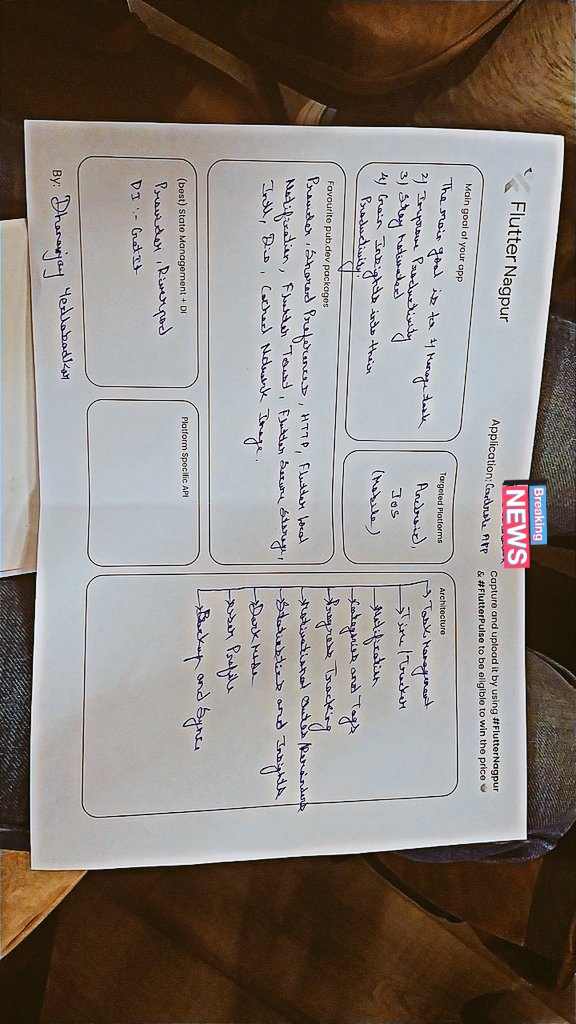 Flutter Nagpur
Application:
APP
Breaking
NEWS
Capture and upload it by using #FlutterNagpur
& #FlutterPulse to be eligible to win the price
Main goal of your app
The main goal is to 1) Manage task
2) Improve Productivity
3) Stay Motivated
4) Gain Insights into their
Productivity
Targeted Platforms
Android,
IOS
(Mobile)
Favourite pub.dev packages
Provider, Shared Preferences, HTTP, Flutter local
Notification, Flutter Toast, Flutter Secure Storage,
Intl, Dio, Cached Network Image.
(best) State Management + DI
Provider, Riverpod
DI :- Get It
Platform Specific API
Architecture
Task Management
Time/Tracker
Notification
Categories and Tags
Progress Tracking
Motivational Quotes/Reminders
Statistics and Insights
Dark Mode
User Profile
Backup and Sync
By: Dhananjay Yerllabadkar